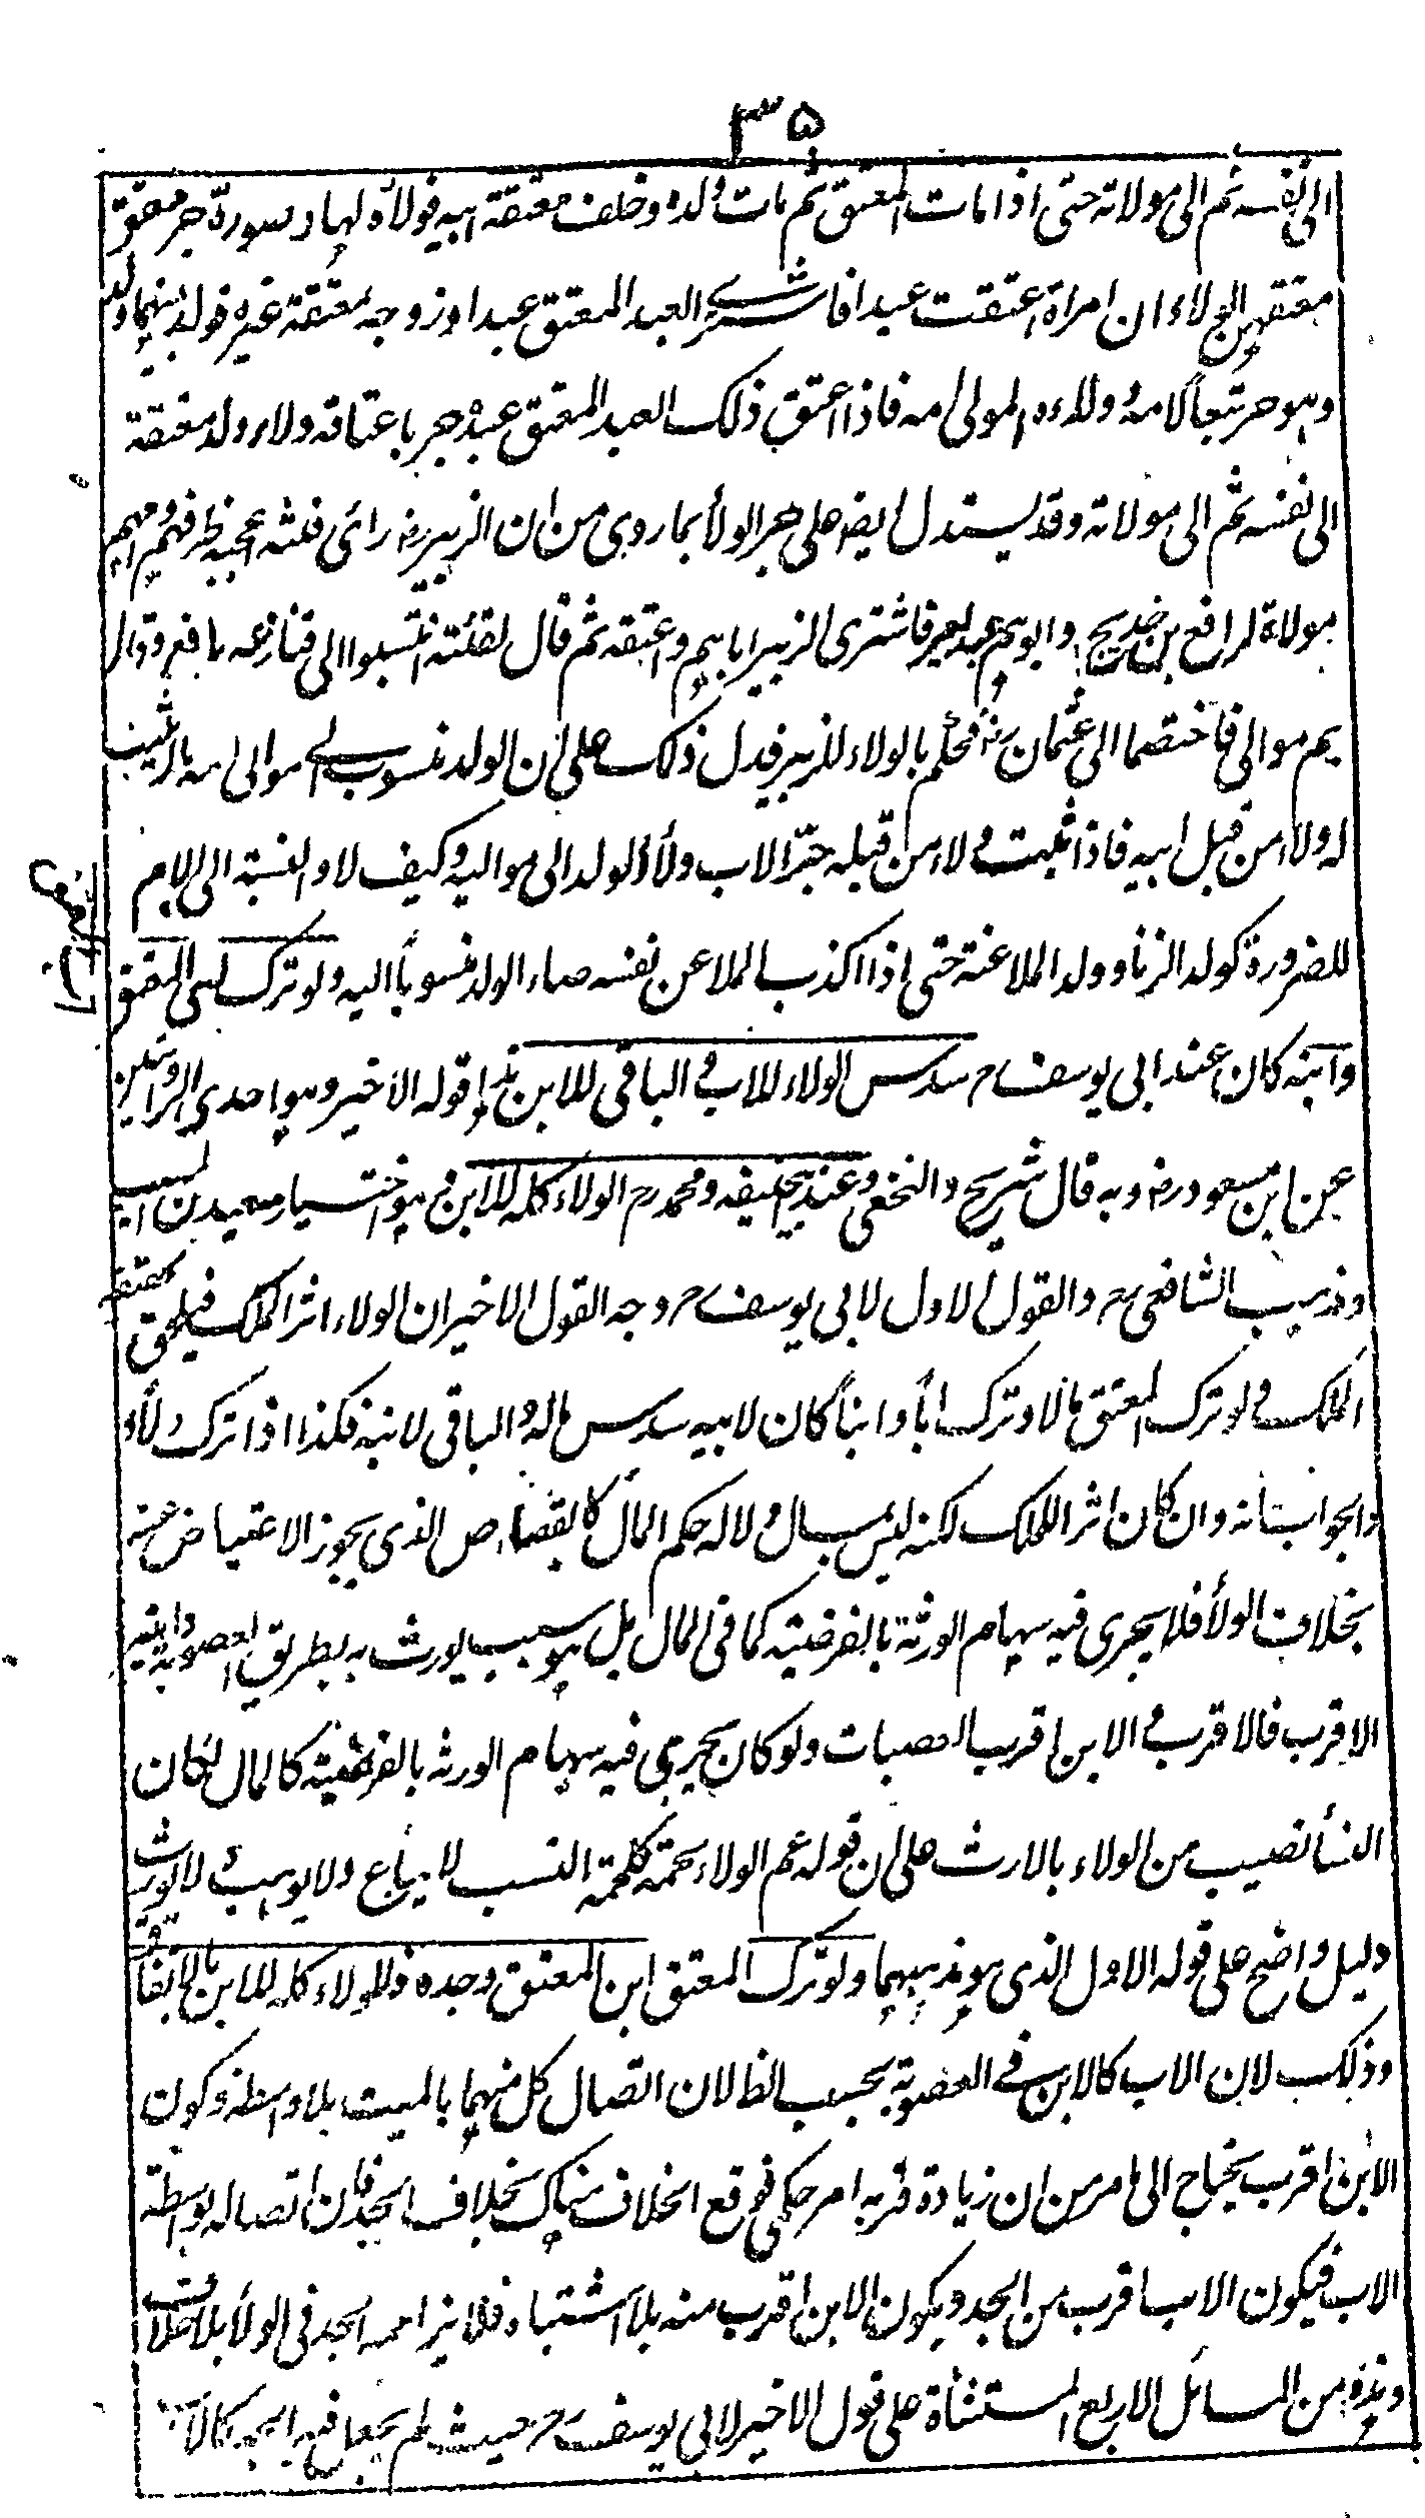 ٣٥
الى نفسه ثم الى مولاته حتى اذا مات المعتق ثم مات ولده وخلف معتقة ابيه فولاؤه لها وصورة جر معتق
معتقهن الولاء ان امراة اعتقت عبدا فاشترى العبد المعتق عبدا وزوجه بمعتقة غيره فولد بينهما ولد
وهو حر تبعا لامه وولاءه لمولى امه فاذا اعتق ذلك العبد المعتق عبده جر باعتاقه ولاء ولد معتقه
الى نفسه ثم الى مولاته وقد يستدل ايضا على جر الولاء بما روى من ان الزبير رض رائ فتية اعجبه ظرفهم وامهم
مولاة لرافع بن خديج وابوهم عبد لغير فاشترى الزبير اباهم واعتقه ثم قال لفتية انتسبوا الى فنازعه رافع وقال
هم موالى فاختصما الى عثمان رض فحكم بالولاء للزبير فدل ذلك على ان الولد منسوب الى موالى امه ما لم يثبت
له ولاء من قبل ابيه فاذا ثبت ولاء من قبله جر الاب ولاء الولد الى مواليه وكيف لا والنسبة الى الام
للضرورة كولد الزنا وولد الملاعنة حتى اذا اكذب الملاعن نفسه صار الولد منسوبا اليه ولو ترك ابى المعتق
وابنه كان عند ابى يوسف رح سدس الولاء للاب والباقى للابن هذا قوله الاخير وهو احدى الروايتين
عن ابن مسعود رض وبه قال شريح والنخعى وعند ابى حنيفه ومحمد رح الولاء كله للابن وهو اختيار سعيد بن المسيب
ومذهب الشافعى رح والقول الاول لابى يوسف رح وجه القول الاخير ان الولاء اثر الملك فيلحق بحقيقة
الملك ولو ترك المعتق مالا وترك ابا وابنا كان لابيه سدس ماله والباقى لابنه فكذا اذا ترك ولاء
والجواب انه وان كان اثر الملك لكنه ليس بمال ولا له حكم المال كالقصاص الذى يجوز الاعتياض عنه
بخلاف الولاء فلا يجرى فيه سهام الورثة بالفرضية كما فى المال بل هو سبب يورث به بطريق العصوبة فيعتبر
الاقرب فالاقرب والابن اقرب العصبات ولو كان يجرى فيه سهام الورثه بالفرضية كالمال لكان
النساء نصيب من الولاء بالارث على ان قوله عم الولاء لحمة كلحمة النسب لا يباع ولا يوهب ولا يورث
دليل واضح على قوله الاول الذى هو مذهبهما ولو ترك المعتق ابن المعتق وجده فالولاء كله للابن بالاتفاق
وذلك لان الاب كالابن فى العصوبة بحسب الظ لان اتصال كل منهما بالميت بلا واسطة وكون
الابن اقرب يحتاج الى ما مر من ان زيادة قربه امر حكمى فوقع الخلاف هناك بخلاف الجد فان اتصاله بواسطة
الاب فيكون الاب اقرب من الجد ويكون الابن اقرب منه بلا اشتباه فلا يزاحمه الجد فى الولاء بلا خلاف
وهذه من المسائل الاربع المستثناة على قول الاخير لابى يوسف رح حيث لم يجعل فيه الجد كالاب